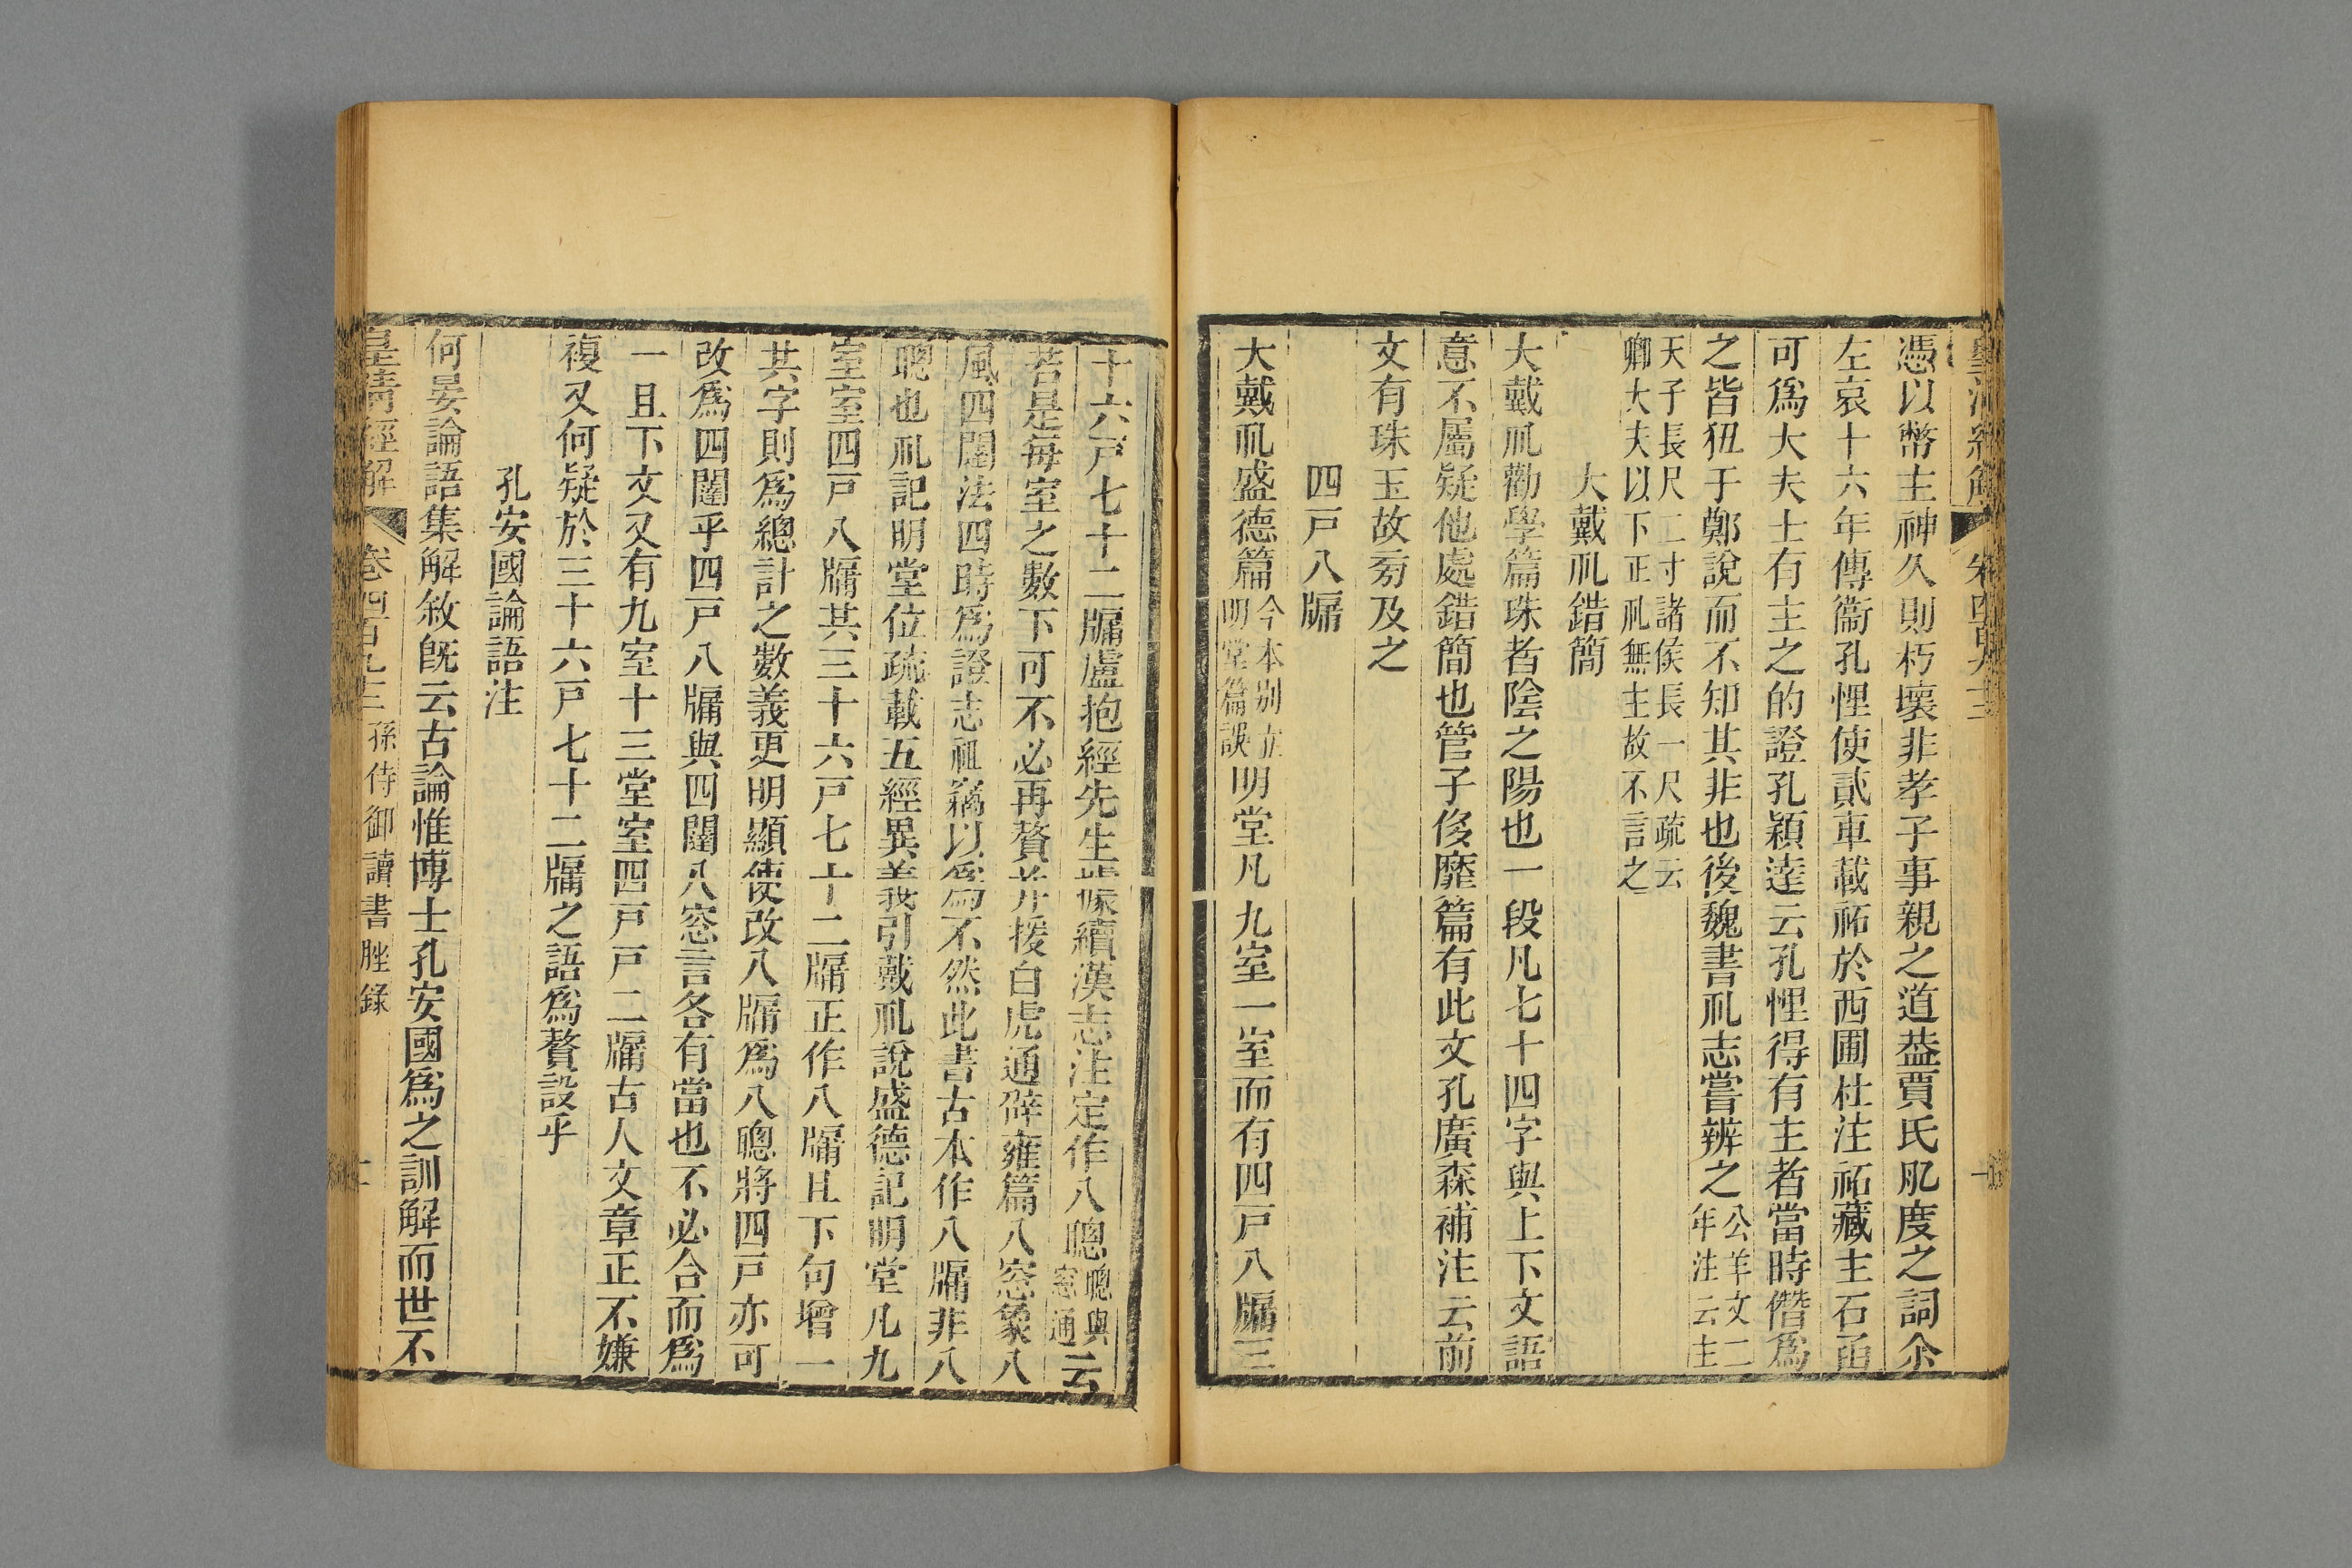 皇清經解 卷四百九十三
憑以幣主神久則朽壞非孝子事親之道葢賈氏肊度之詞尒
左哀十六年傳衞孔悝使貳車載祏於西圃杜注祏藏主石函
可爲大夫士有主之的證孔穎逹云孔悝得有主者當時僭爲
之皆狃于鄭說而不知其非也後魏書礼志嘗辨之公羊文二年注云主
天子長尺二寸諸侯長一尺疏云卿大夫以下正礼無主故不言之
大戴礼錯簡
大戴礼勸學篇珠者陰之陽也一段凡七十四字與上下文語
意不屬疑他處錯簡也管子侈靡篇有此文孔廣森補注云前
文有珠玉故旁及之
四戸八牖
大戴礼盛德篇今本别立明堂篇誤明堂凡九室一室而有四戸八牖三
十六戸七十二牖盧抱經先生據續漢志注定作八聰聰與窓通云
若是每室之數下可不必再贅并援白虎通辟雍篇八窓象八
風四闥法四時爲證志祖竊以爲不然此書古本作八牖非八
聰也礼記明堂位疏載五經異義引戴礼說盛德記明堂凡九
室室四戸八牖共三十六戸七十二牖正作八牖且下句增一
共字則爲總計之數義更明顯使改八牖爲八聰將四戸亦可
改爲四闥乎四戸八牖與四闥八窓言各有當也不必合而爲
一且下文又有九室十三堂室四戸戸二牖古人文章正不嫌
複又何疑於三十六戸七十二牖之語爲贅設乎
孔安國論語注
何晏論語集解敘旣云古論惟博士孔安國爲之訓解而世不
皇清經解 卷四百九十三 孫侍御讀書脞錄